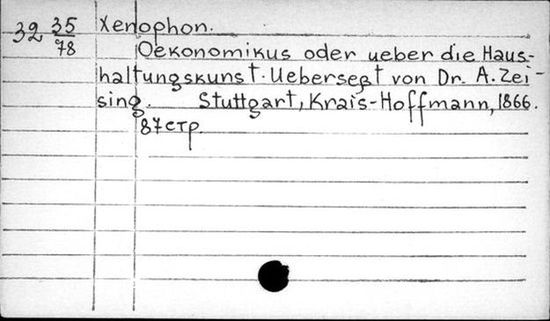 32 35/78 Xenophon.
Oekonomikus oder ueber die Haus-
haltungskunst. Uebersetzt von Dr. A. Zei-
sing. Stuttgart, Krais-Hoffmann, 1866.
87 стр.